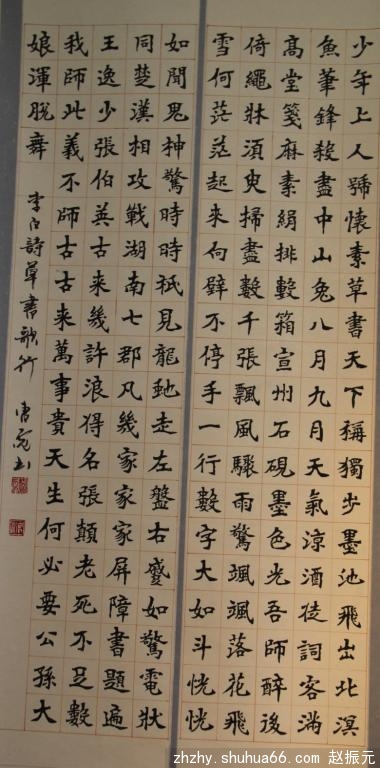 少年上人號懷素草書天下稱獨步墨池飛出北溟
魚筆鋒殺盡中山兔八月九月天氣涼酒徒詞客滿
高堂箋麻素絹排數箱宣州石硯墨色光吾師醉後
倚繩牀湏臾掃盡數千張飄風驟雨驚颯颯落花飛
雪何茫茫起來向壁不停手一行數字大如斗恍恍
如聞鬼神驚時時祇見龍虵走左盤右蹙如驚電狀
同楚漢相攻戰湖南七郡凡幾家家家屏障書題遍
王逸少張伯英古來幾許浪得名張顛老死不足數
我師此義不師古古來萬事貴天生何必要公孫大
娘渾脫舞 李白詩草書歌行
zhzhy.shuhua66.com 赵振元